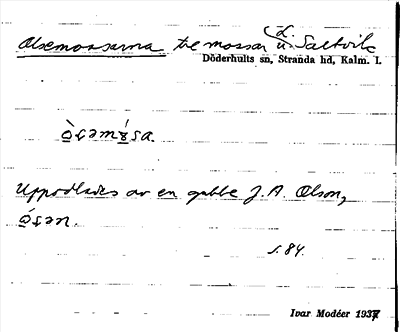 Olsemossarna tre mossar L. u. Saltvik
Döderhults sn, Stranda hd, Kalm. l.
Uppodlades av en gubbe J. A. Olson,
s. 84.
Ivar Modéer 1937